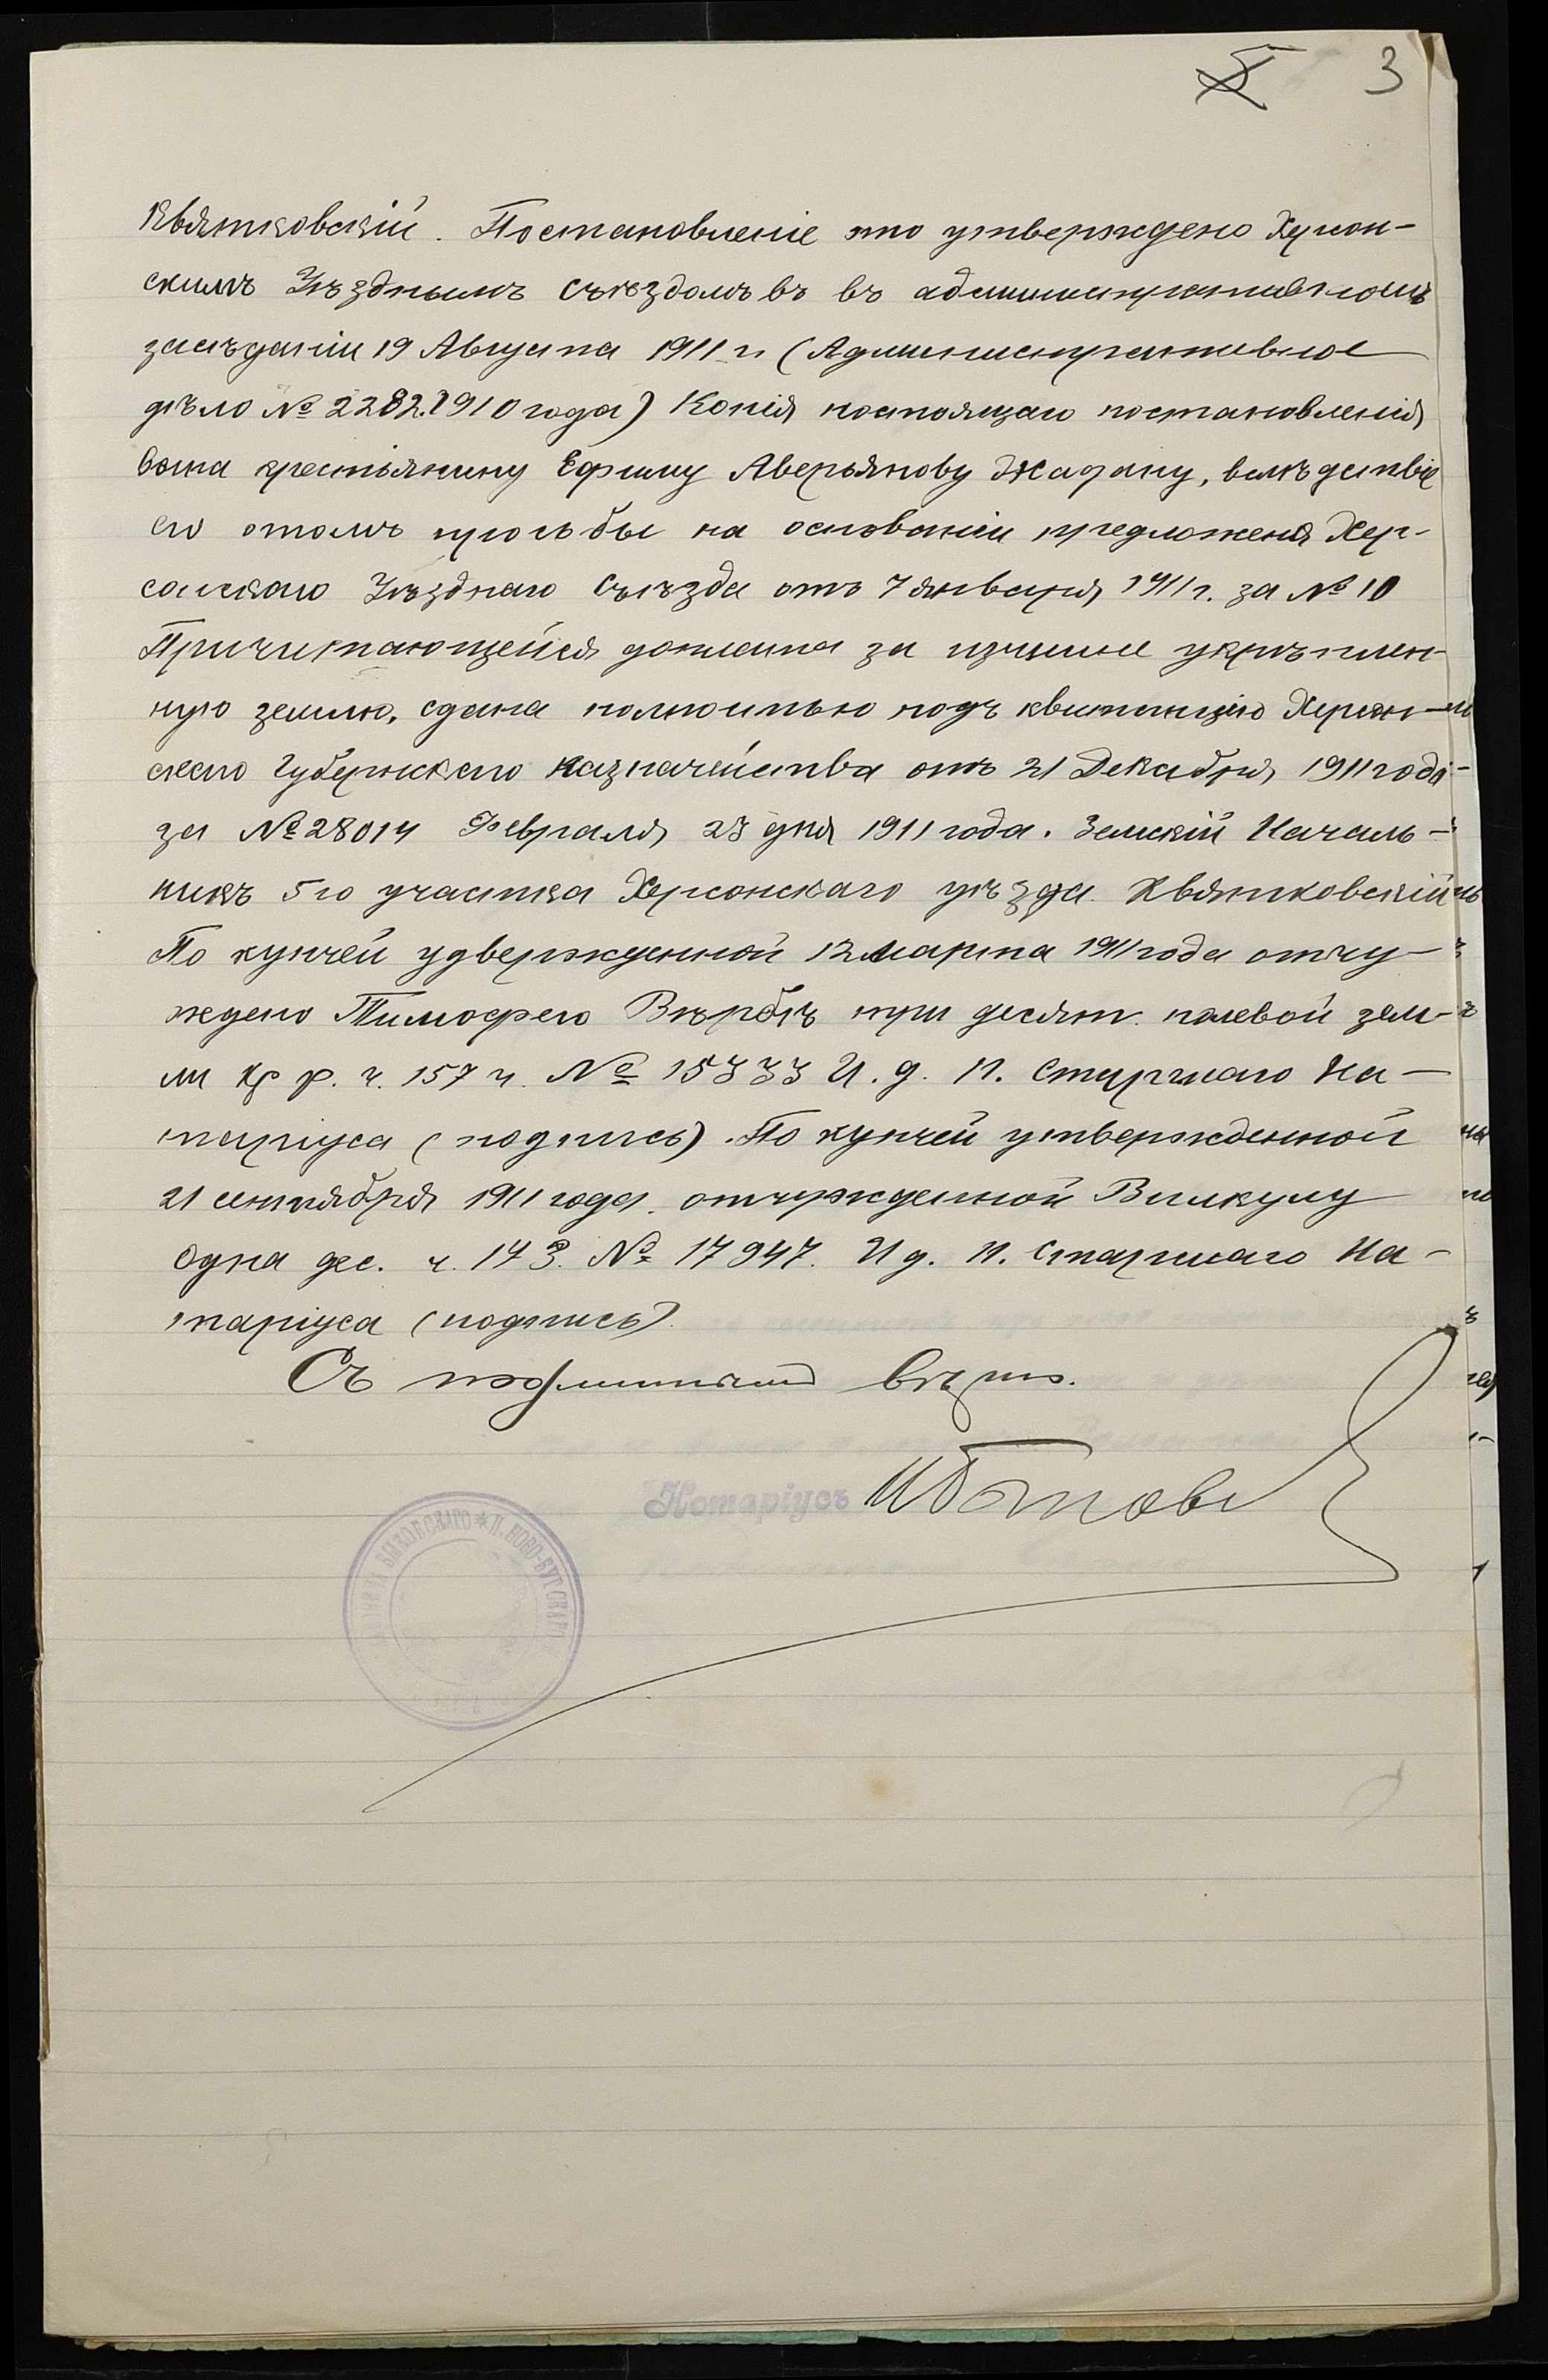 5 3
Квятковскій. Постановленіе это утверждено Херсон-
скимъ Уѣзднымъ Съѣздомъ въ въ административномъ
засѣданіи 19 Августа 1911 г. (Административное
дѣло № 2282.1910 года) Копія настоящаго постановленія
дана крестьянину Ефиму Аверьянову Жадану, вслѣдствіе
его о томъ просьбы на основаніи предложенія Хер-
сонскаго Уѣзднаго Съѣзда отъ 7 января 1911 г. за № 10
Причитающейся доплата за излишне укрѣплен-
ную землю, сдана полностью подъ квитанцію Херсон-
скаго Губернскаго Казначейства отъ 21 Декабря 1911 года
за № 28014 Февраля 23 дня 1911 года. Земскій Началь-
никъ 5го участка Херсонскаго уѣзда. Квятковскій
По купчей удвержденной 12 марта 1911 года отчу-
ждено Тимофею Вербѣ три десят. полевой зем-
ли Кр р. ч. 157 ч. № 15333 И. д. Н. Старшаго На-
таріуса (подпись). По купчей утвержденной
21 сентября 1911 года. отчужденной Викулу
одна дес. ч. 143. № 17947. И д. Н. Старшаго На-
таріуса (подпись).
Съ подлиннымъ вѣрно.
Нотаріусъ
Н. НОВО-БУГСКАГО